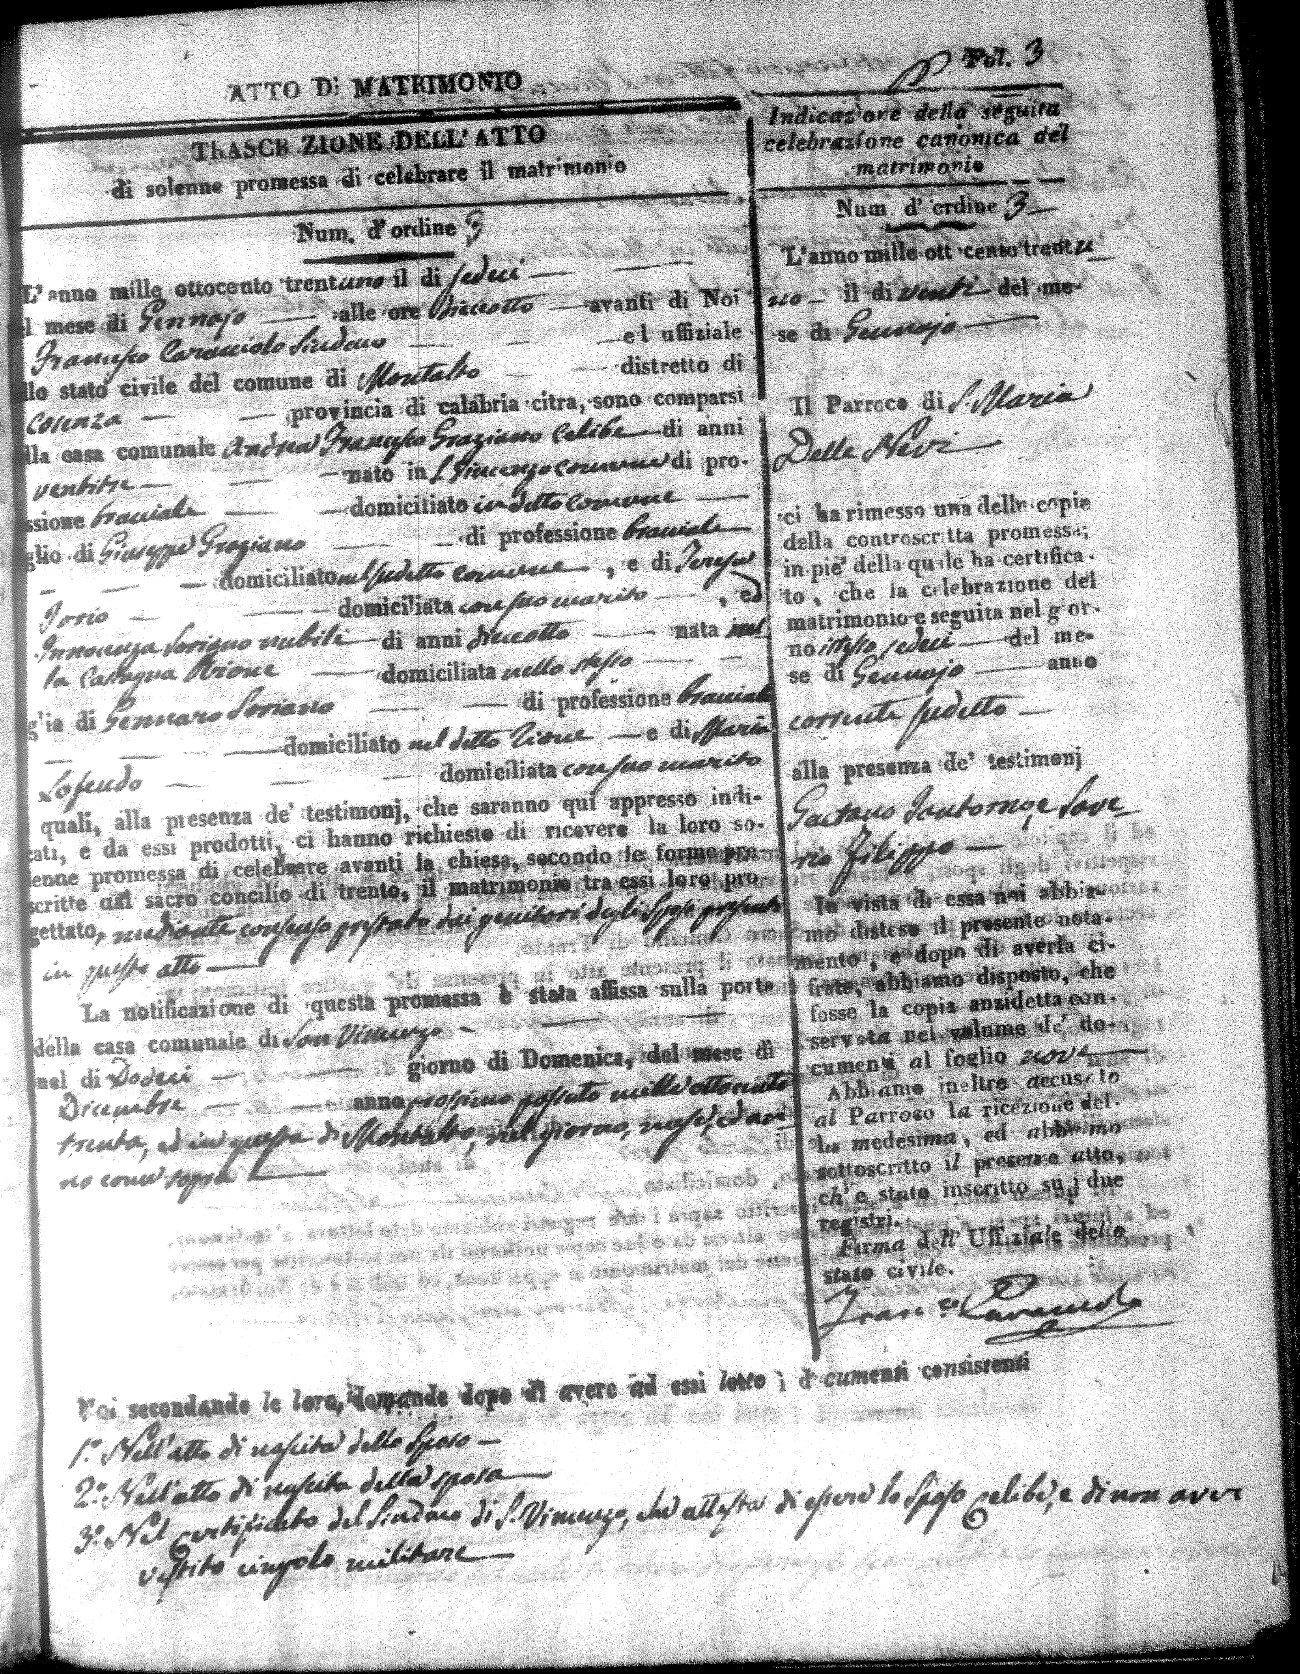 Fol. 3
ATTO Di MATRIMONIO
TRASCR ZIONE DELL'ATTO
di solenne promessa di celebrare il matrimonio
Num. d'ordine 3
L'anno mille ottocento trentuno il di sedeci
l mese di Gennajo alle ore Dieciotto avanti di Noi
Francesco Caracciolo Sindaco ed uffiziale
llo stato civile del comune di Montalto distretto di
Cosenza provincia di calabria citra, sono comparsi
lla casa comunale Andrea Francesco Graziano Celibe di anni
ventitre nato in S. Vincenzo comune di pro-
ssione bracciale domiciliato in detto comune
glio di Giuseppe Graziano di professione bracciale
domiciliato nel sudetto comune, e di Teresa
Iorio domiciliata con suo marito, ed
Innocenza Soriano nubile di anni dieciotto nata nel
la Cavagna Rione domiciliata nello stesso
g'ia di Gennaro Soriano di professione bracciale
domiciliato nel detto Rione e di Maria
Lofeudo domiciliata con suo marito
quali, alla presenza de' testimonj, che saranno qui appresso indi-
cati, e da essi prodotti, ci hanno richiesto di ricevere la loro so-
lenne promessa di celebrare avanti la chiesa, secondo le forme pre-
scritte dal sacro concilio di trento, il matrimonio tra essi loro pro-
gettato, mediante consenso prestato dei genitori degli Sposi presenti
in questo atto
La notificazione di questa promessa è stata affissa sulla porta
della casa comunale di San Vincenzo
nel di Dodeci giorno di Domenica, del mese di
Dicembre anno prossimo passato mille ottocento
trenta, ed in questa di Montalto, nel giorno, mese, ed an-
no come sopra
Indicaz'one della seguita
celebrazione canonica del
matrimonio
Num d'ordine 3
L'anno mille ott cento trentu
no il di venti del me-
se di Gennajo
Il Parroco di S. Maria
Delle Nevi
ci ha rimesso una delle copie
della controscritta promessa;
in piè della quale ha certifica-
to, che la celebrazione del
matrimonio e seguita nel g'or-
no istesso sedeci del me-
se di Gennajo anno
corrente sudetto
alla presenza de' testimonj
Gaetano Santoro, e Save-
rio Filippo
In vista di essa noi abbia-
mo disteso il presente nota-
mento, e dopo di averla ci-
frato, abbiamo disposto, che
fosse la copia anzidetta con-
servata nel volume de' do-
cumenti al foglio nove
Abbiamo inoltre accusato
al Parroco la ricezione del-
la medesima, ed abbiamo
sottoscritto il presente atto,
ch'è stato inscritto su i due
registri.
Firma dell'Uffiziale dello
stato civile.
Fran.co Caracciolo
Noi secondando le loro domande dopo di avere ad essi letto i d cumenti consistenti
1.° Nell'atto di nascita dello Sposo
2.° Nell'atto di nascita della sposa
3.° Nel certificato del Sindaco di S. Vincenzo, che attesta di essere lo Sposo celibe, e di non aver
vestito cingolo militare